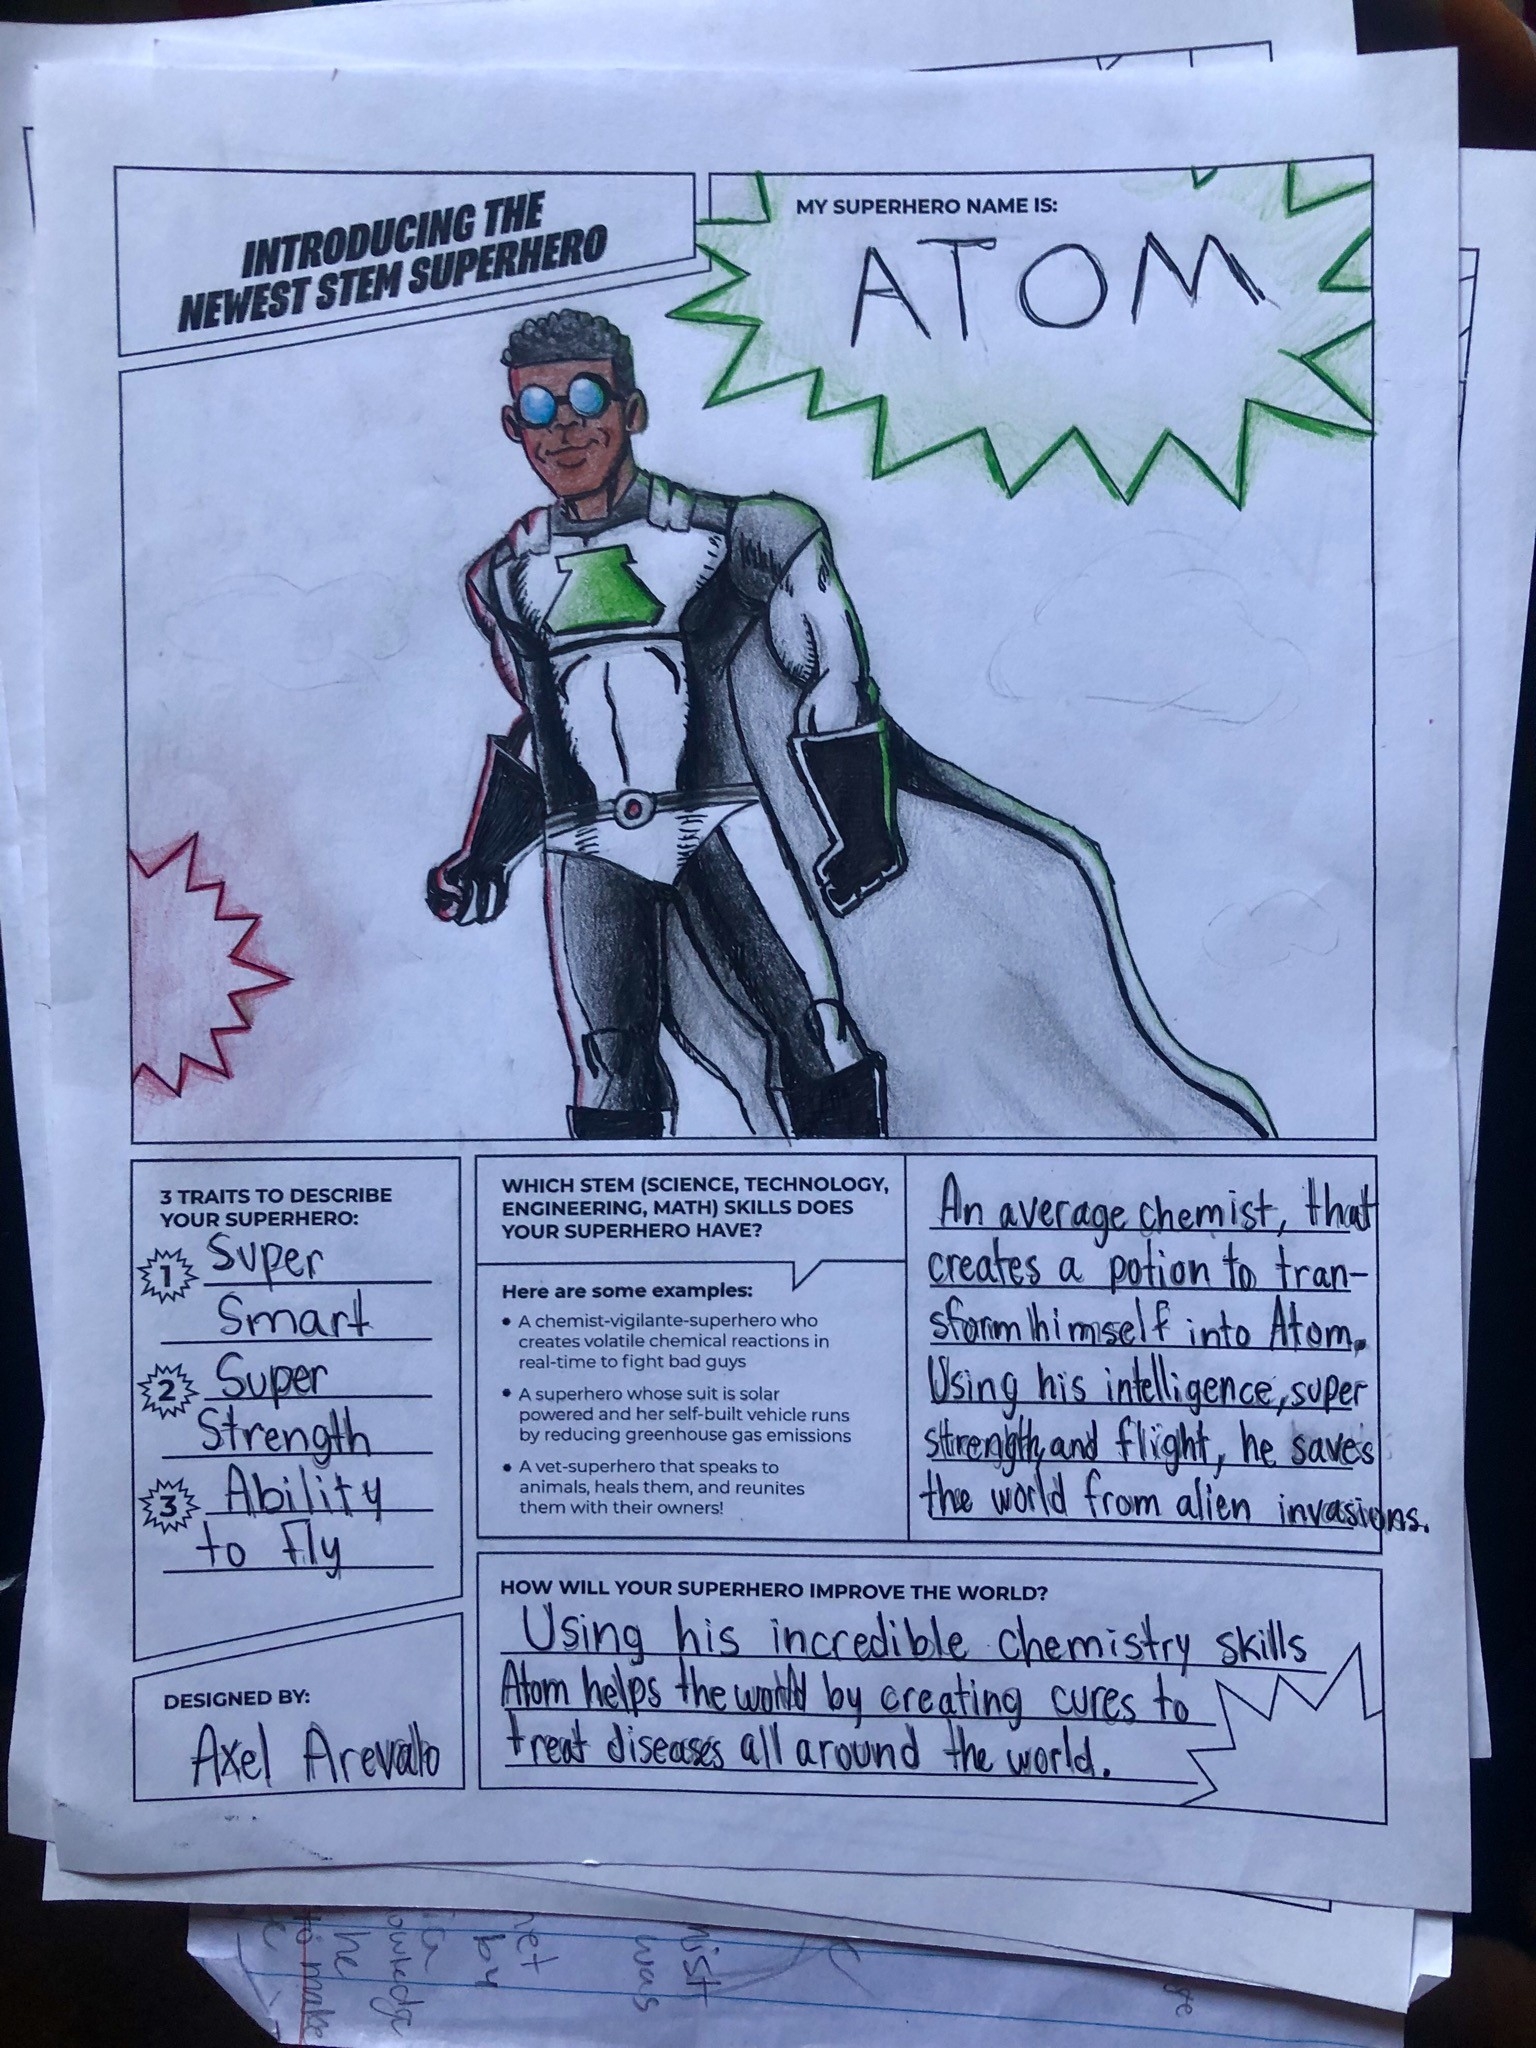 INTRODUCING THE
NEWEST STEM SUPERHERO
MY SUPERHERO NAME IS:
ATOM
3 TRAITS TO DESCRIBE
YOUR SUPERHERO:
1 Super
Smart
2 Super
Strength
3 Ability
to fly
DESIGNED BY:
Axel Arevalo
WHICH STEM (SCIENCE, TECHNOLOGY,
ENGINEERING, MATH) SKILLS DOES
YOUR SUPERHERO HAVE?
Here are some examples:
• A chemist-vigilante-superhero who
creates volatile chemical reactions in
real-time to fight bad guys
• A superhero whose suit is solar
powered and her self-built vehicle runs
by reducing greenhouse gas emissions
• A vet-superhero that speaks to
animals, heals them, and reunites
them with their owners!
An average chemist, that
creates a potion to tran-
sform himself into Atom.
Using his intelligence, super
strength, and flight, he saves
the world from alien invasions.
HOW WILL YOUR SUPERHERO IMPROVE THE WORLD?
Using his incredible chemistry skills
Atom helps the world by creating cures to
treat diseases all around the world.
was
by
he
to make